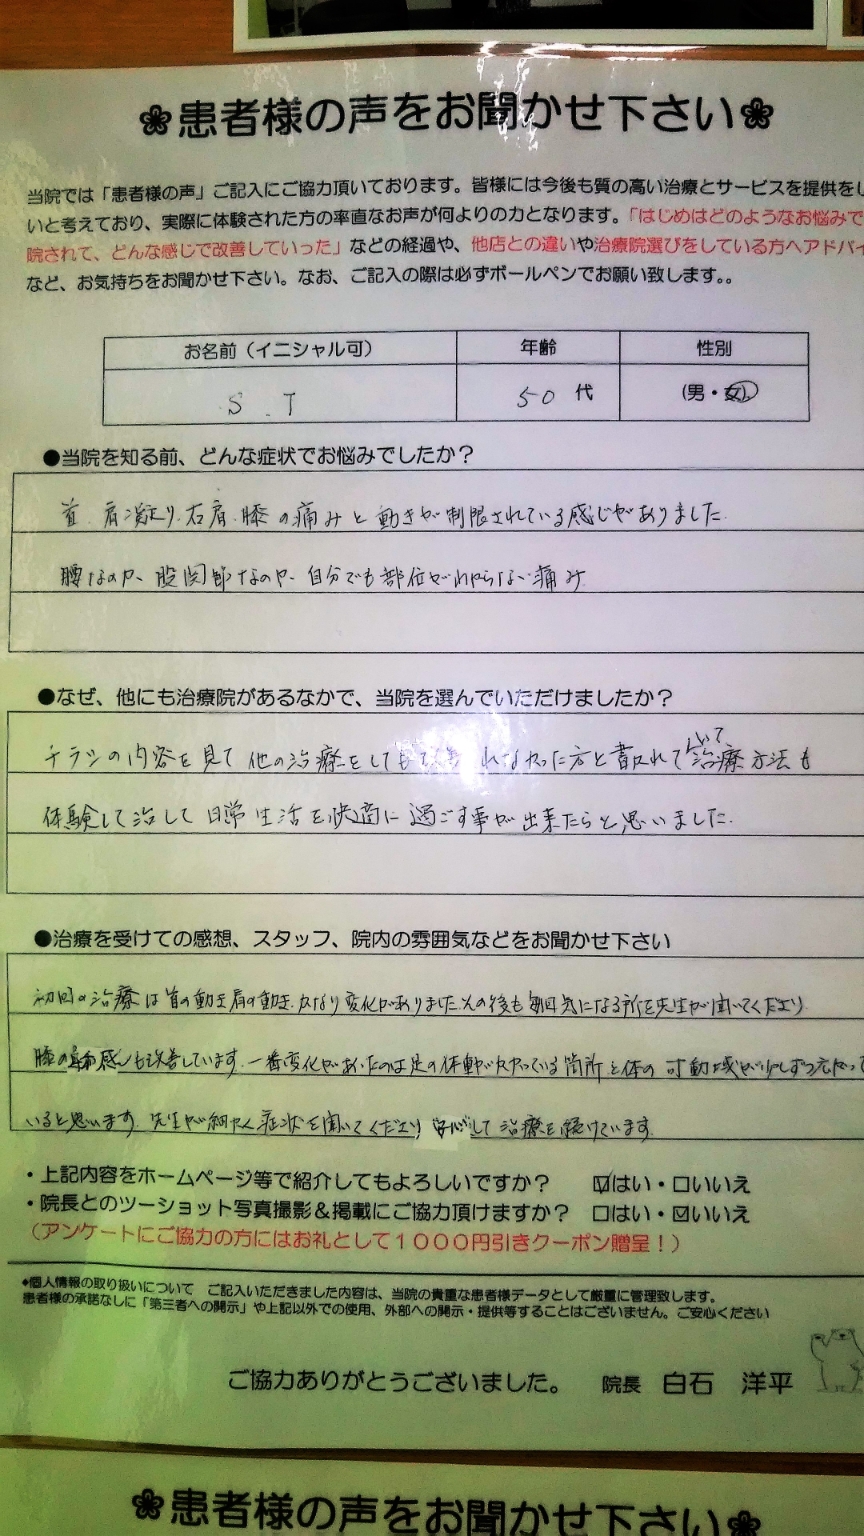 ❀患者様の声をお聞かせ下さい❀
当院では「患者様の声」ご記入にご協力頂いております。皆様には今後も質の高い治療とサービスを提供をし
いと考えており、実際に体験された方の率直なお声が何よりの力となります。「はじめはどのようなお悩みで
院されて、どんな感じで改善していった」などの経過や、他店との違いや治療院選びをしている方へアドバイ
など、お気持ちをお聞かせ下さい。なお、ご記入の際は必ずボールペンでお願い致します。。
お名前（イニシャル可） 年齢 性別
S.T 50代 (男・女)
●当院を知る前、どんな症状でお悩みでしたか？
首.肩凝り.右肩.膝の痛みと動きが制限されている感じがありました.
腰なのか、股関節なのか、自分でも部位がわからない痛み
●なぜ、他にも治療院があるなかで、当院を選んでいただけましたか？
チラシの内容を見て他の治療をしても れなかった方と書かれていて治療方法も
体験して治して日常生活を快適に過ごす事が出来たらと思いました.
●治療を受けての感想、スタッフ、院内の雰囲気などをお聞かせ下さい
初回の治療は首の動き肩の動き.かなり変化がありました.その後も毎回気になる所を先生が聞いてくださり.
膝の 感じも改善しています.一番変化があったのは足の 箇所と体の可動域が少しずつ広がって
いると思います.先生が細かく症状を聞いてくださり安心して治療を続けています.
・上記内容をホームページ等で紹介してもよろしいですか？ ☑はい・□いいえ
・院長とのツーショット写真撮影＆掲載にご協力頂けますか？ □はい・☑いいえ
（アンケートにご協力の方にはお礼として１０００円引きクーポン贈呈！）
◆個人情報の取り扱いについて ご記入いただきました内容は、当院の貴重な患者様データとして厳重に管理致します。
患者様の承諾なしに「第三者への開示」や上記以外での使用、外部への開示・提供等することはございません。ご安心ください
ご協力ありがとうございました。 院長 白石 洋平
❀患者様の声をお聞かせ下さい❀